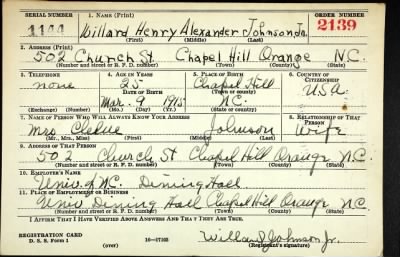 SERIAL NUMBER 1. NAME (Print) ORDER NUMBER
1144 Willard Henry Alexander Johnson Jr. 2139
(First) (Middle) (Last)
2. ADDRESS (Print)
502 Church St. Chapel Hill Orange N.C.
(Number and street or R. F. D. number) (Town) (County) (State)
3. TELEPHONE 4. AGE IN YEARS 5. PLACE OF BIRTH 6. COUNTRY OF CITIZENSHIP
none 25 Chapel Hill
DATE OF BIRTH (Town or county) USA
Mar. 9 1915 N.C.
(Exchange) (Number) (Mo.) (Day) (Yr.) (State or country)
7. NAME OF PERSON WHO WILL ALWAYS KNOW YOUR ADDRESS 8. RELATIONSHIP OF THAT PERSON
Mrs. Johnson Wife
(Mr., Mrs., Miss) (First) (Middle) (Last)
9. ADDRESS OF THAT PERSON
502 Church St Chapel Hill Orange N.C.
(Number and street or R. F. D. number) (Town) (County) (State)
10. EMPLOYER'S NAME
Univ. of N.C. Dining Hall
11. PLACE OF EMPLOYMENT OR BUSINESS
Univ. Dining Hall Chapel Hill Orange N.C.
(Number and street or R. F. D. number) (Town) (County) (State)
I AFFIRM THAT I HAVE VERIFIED ABOVE ANSWERS AND THAT THEY ARE TRUE.
REGISTRATION CARD
D. S. S. Form 1 (over) 16—17105 Willard Johnson Jr.
(Registrant's signature)